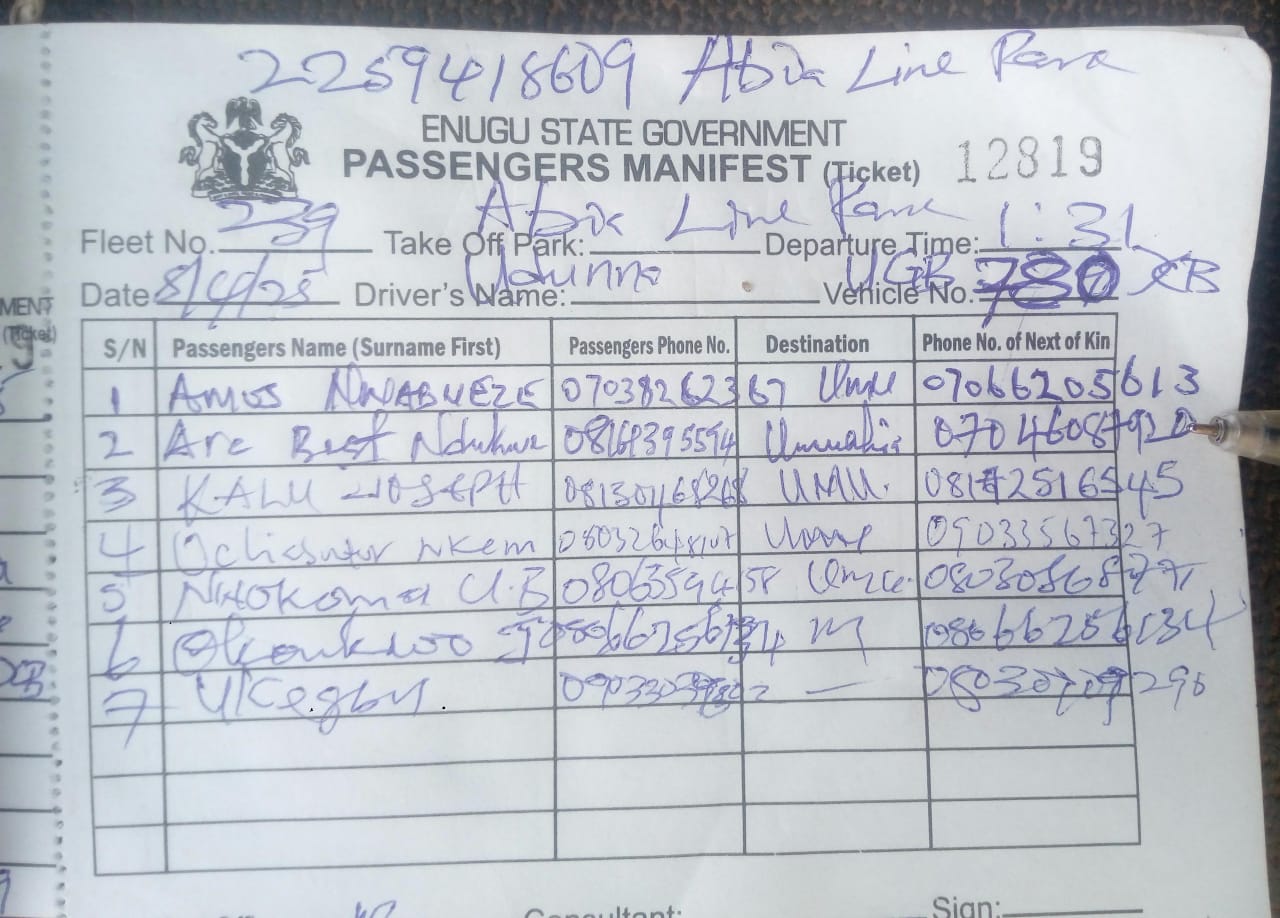 2259418609 Abia Line Park
ENUGU STATE GOVERNMENT
PASSENGERS MANIFEST (Ticket) 12819
Fleet No. 239 Take Off Park: Abia Line Park Departure Time: 1:31
Date 8/4/25 Driver's Name: Udunna Vehicle No. UGB 780 XB
S/N Passengers Name (Surname First) Passengers Phone No. Destination Phone No. of Next of Kin
1 AMOS NWABUEZE 07038262367 Umu 07066205613
2 Arc Best Ndukwe 08169395594 Umuahia 07046087920
3 KALU JOSEPH 08130468268 UMU. 2516545
4 Nkem 09033567327
5 U.B 0806359458
6 08066256134
7 Ukegbu — 296
MENT
(Ticket)
Consultant: Sign: